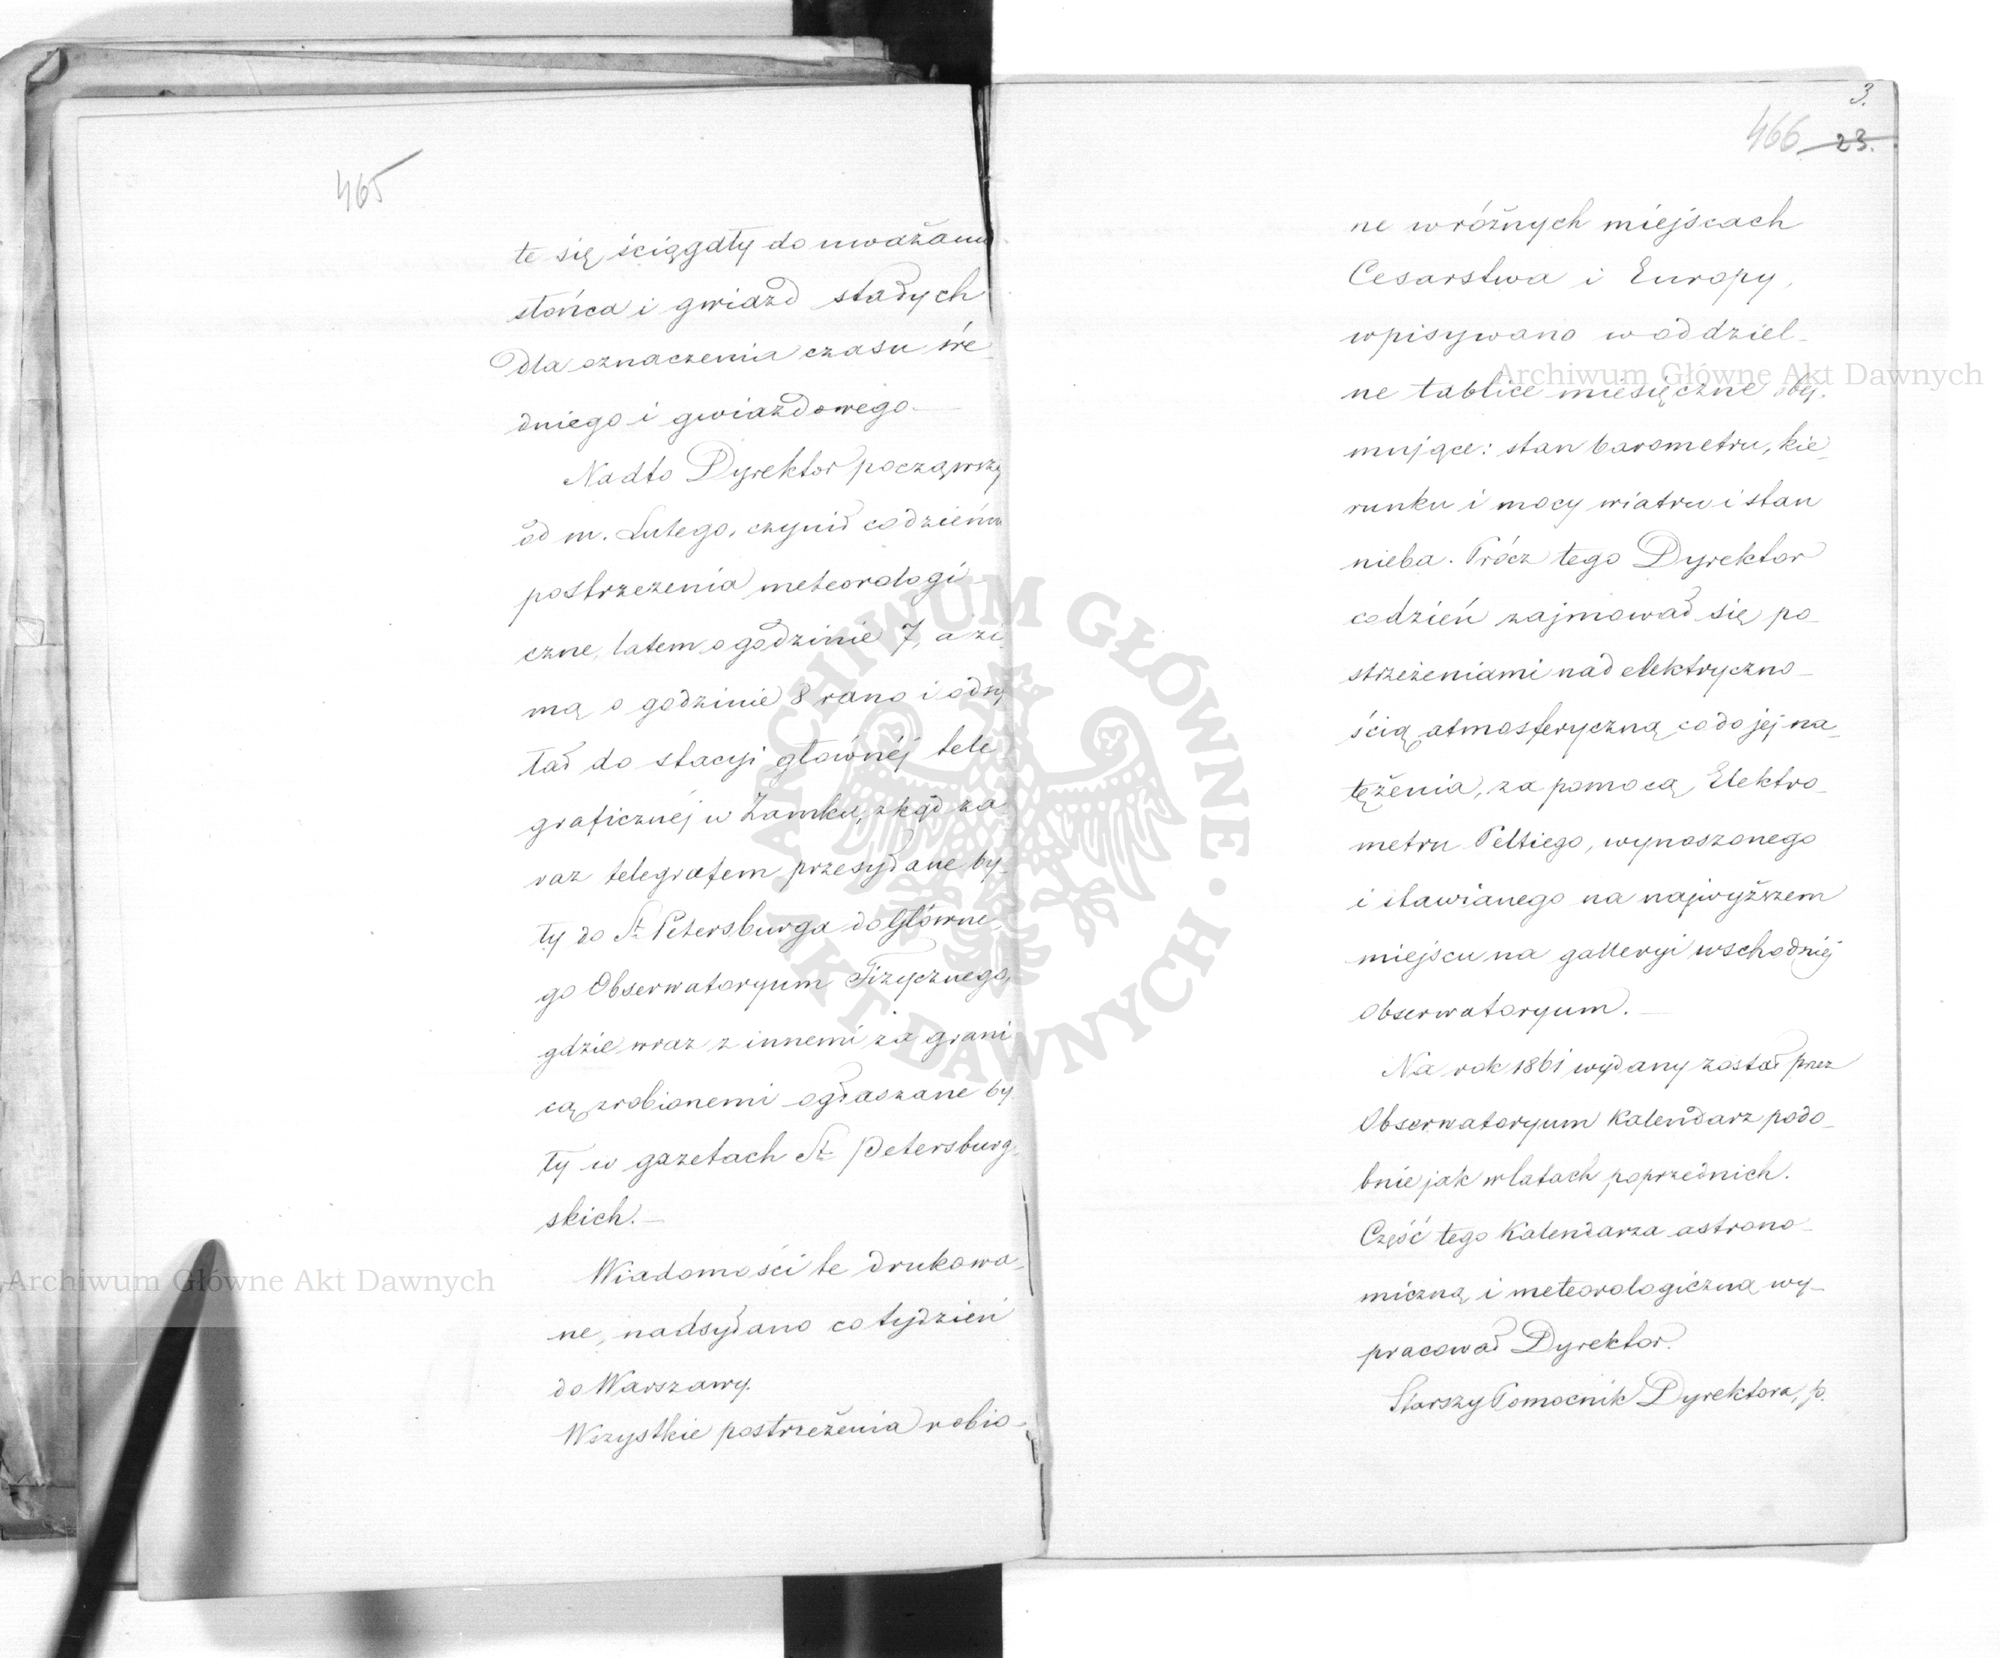 465
te się ściągały do uważania
słońca i gwiazd stałych
dla oznaczenia czasu śre
dniego i gwiazdowego.—
Nadto Dyrektor począwszy
od m. Lutego, czynił codzienn
postrzeżenia meteorologi-
czne, latem o godzinie 7, a zi
mą o godzinie 8 rano i odsy
łał do stacyi głównéj tele
graficznéj w Zamku, zkąd za
raz telegrafem przesyłane by-
ły do St Petersburga do Główne
go Obserwatoryum Fizycznego,
gdzie wraz z innemi za grani
cą zrobionemi ogłaszane by
ły w gazetach St Petersburg-
skich.—
Wiadomości te drukowa-
ne, nadsyłano co tydzień
do Warszawy.
Wszystkie postrzeżenia robio-
3.
466 23.
ne w różnych miejscach
Cesarstwa i Europy,
wpisywano w oddziel-
ne tablice miesięczne obej-
mujące: stan barometru, kie-
runku i mocy wiatru i stan
nieba. Prócz tego Dyrektor
codzień zajmował się po-
strzeżeniami nad elektryczno-
ścią atmosferyczną co do jej na-
tężenia, za pomocą Elektro-
metru Peltiego, wynoszonego
i stawianego na najwyższem
miejscu na galleryi wschodniej
Obserwatoryum.—
Na rok 1861 wydany został przez
Obserwatoryum Kalendarz podo-
bnie jak w latach poprzednich.
Część tego Kalendarza astrono-
miczną i meteorologiczną wy-
pracował Dyrektor.
Starszy Pomocnik Dyrektora, p.
Archiwum Główne Akt Dawnych
Archiwum Główne Akt Dawnych
ARCHIWUM GŁÓWNE AKT DAWNYCH